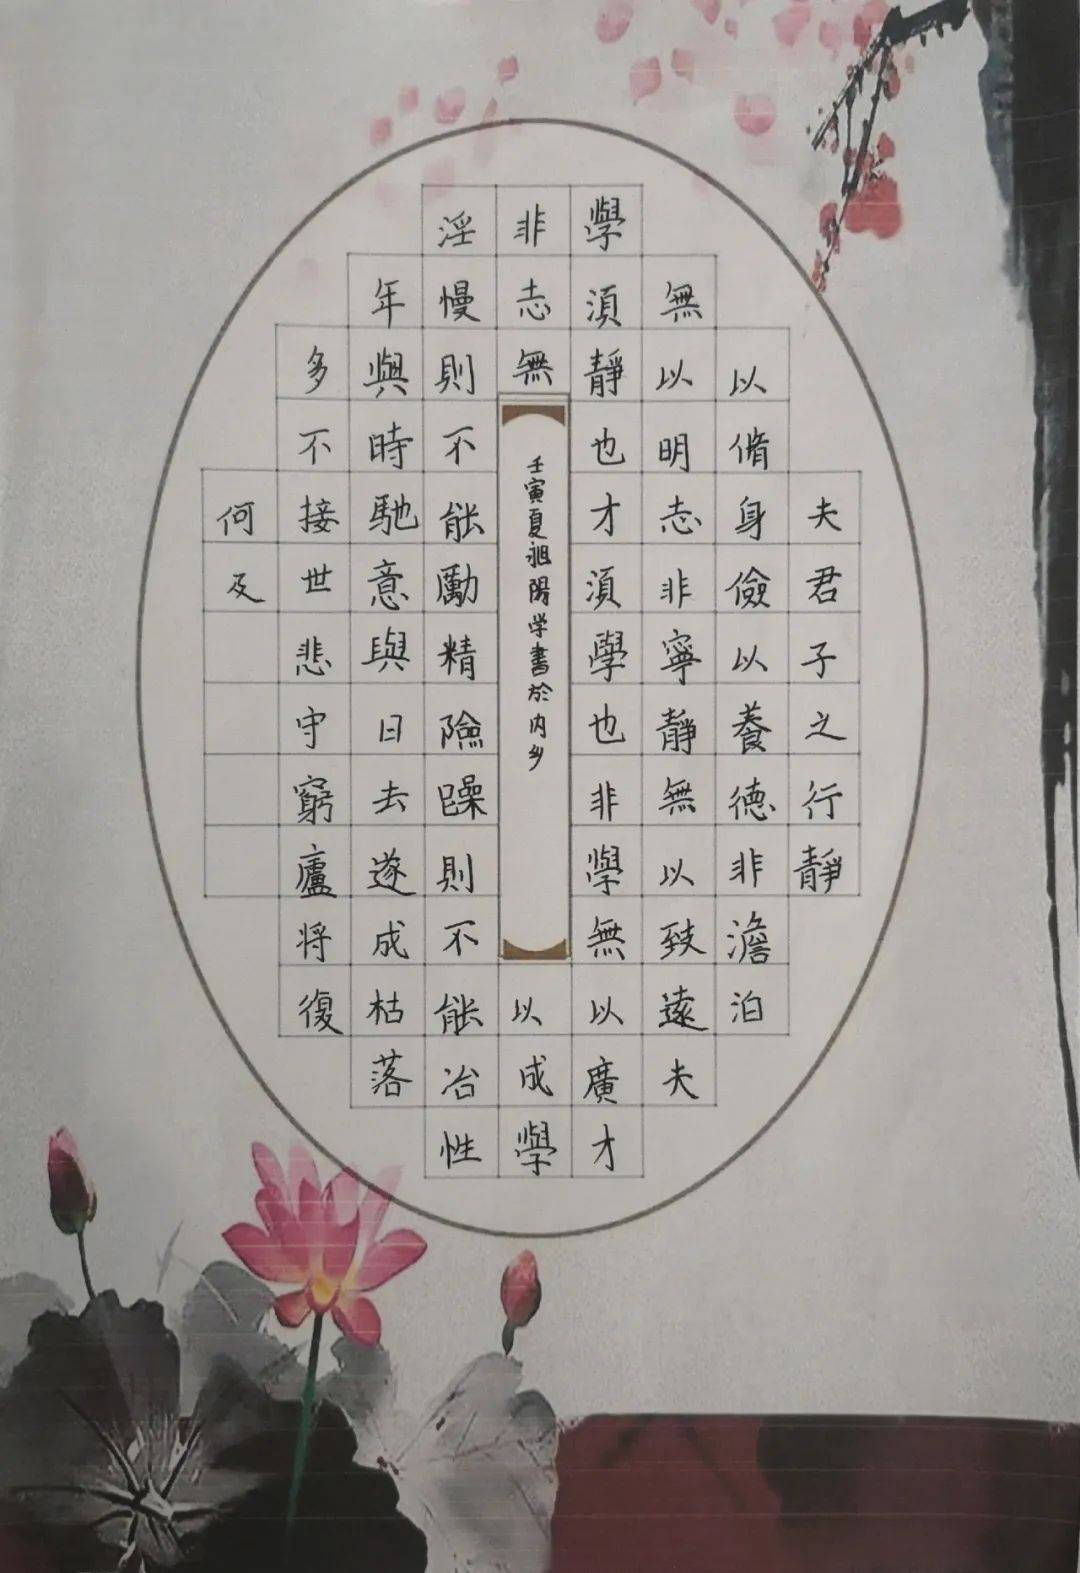 夫君子之行靜
以脩身儉以養德非澹泊
無以明志非寧靜無以致遠夫
學須靜也才須學也非學無以廣才
非志無
以成學
淫慢則不能勵精險躁則不能冶性
年與時馳意與日去遂成枯落
多不接世悲守窮廬将復
何及
壬寅夏祖陽学書於内乡